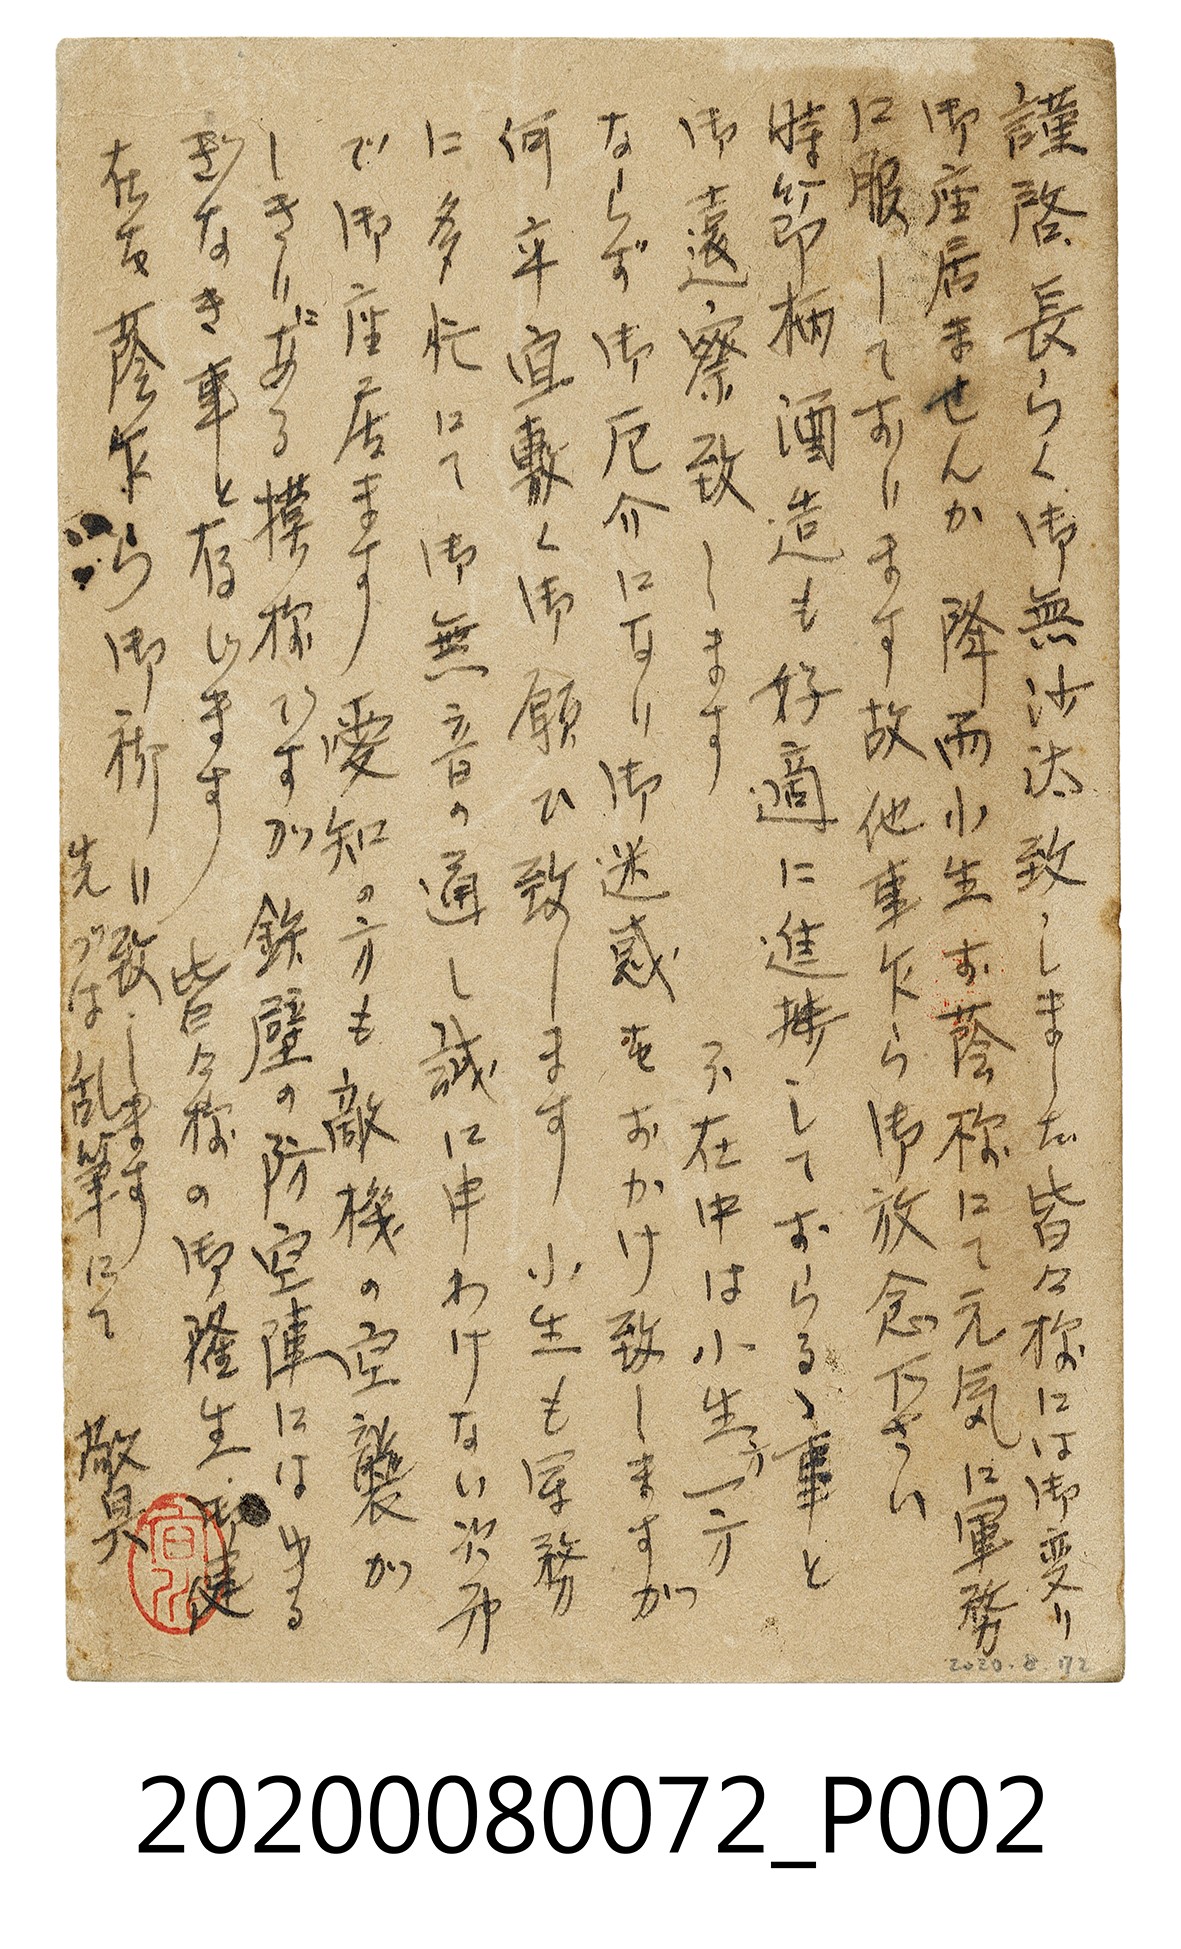 謹啓 長らく御無沙汰致しました 皆々様には御変り
御座居ませんか 降而小生お蔭様にて元気に軍務
に服しております故他事乍ら御放念下さい
時節柄酒造も好適に進捗しておらるゝ事と
御遠察致します 不在中は小生方一方
ならず御厄介になり御迷惑をおかけ致しますが
何卒宜敷く御願ひ致します 小生も軍務
に多忙にて御無音の通し誠に申わけない次第
で御座居ます 愛知の方も敵機の空襲が
しきりにある模様ですが 鉄壁の防空陣にはゆる
ぎなき事と存じます 皆々様の御隆生 御健
在を蔭乍ら御祈り致します
先づは乱筆にて 敬具
2020.8.72
20200080072_P002